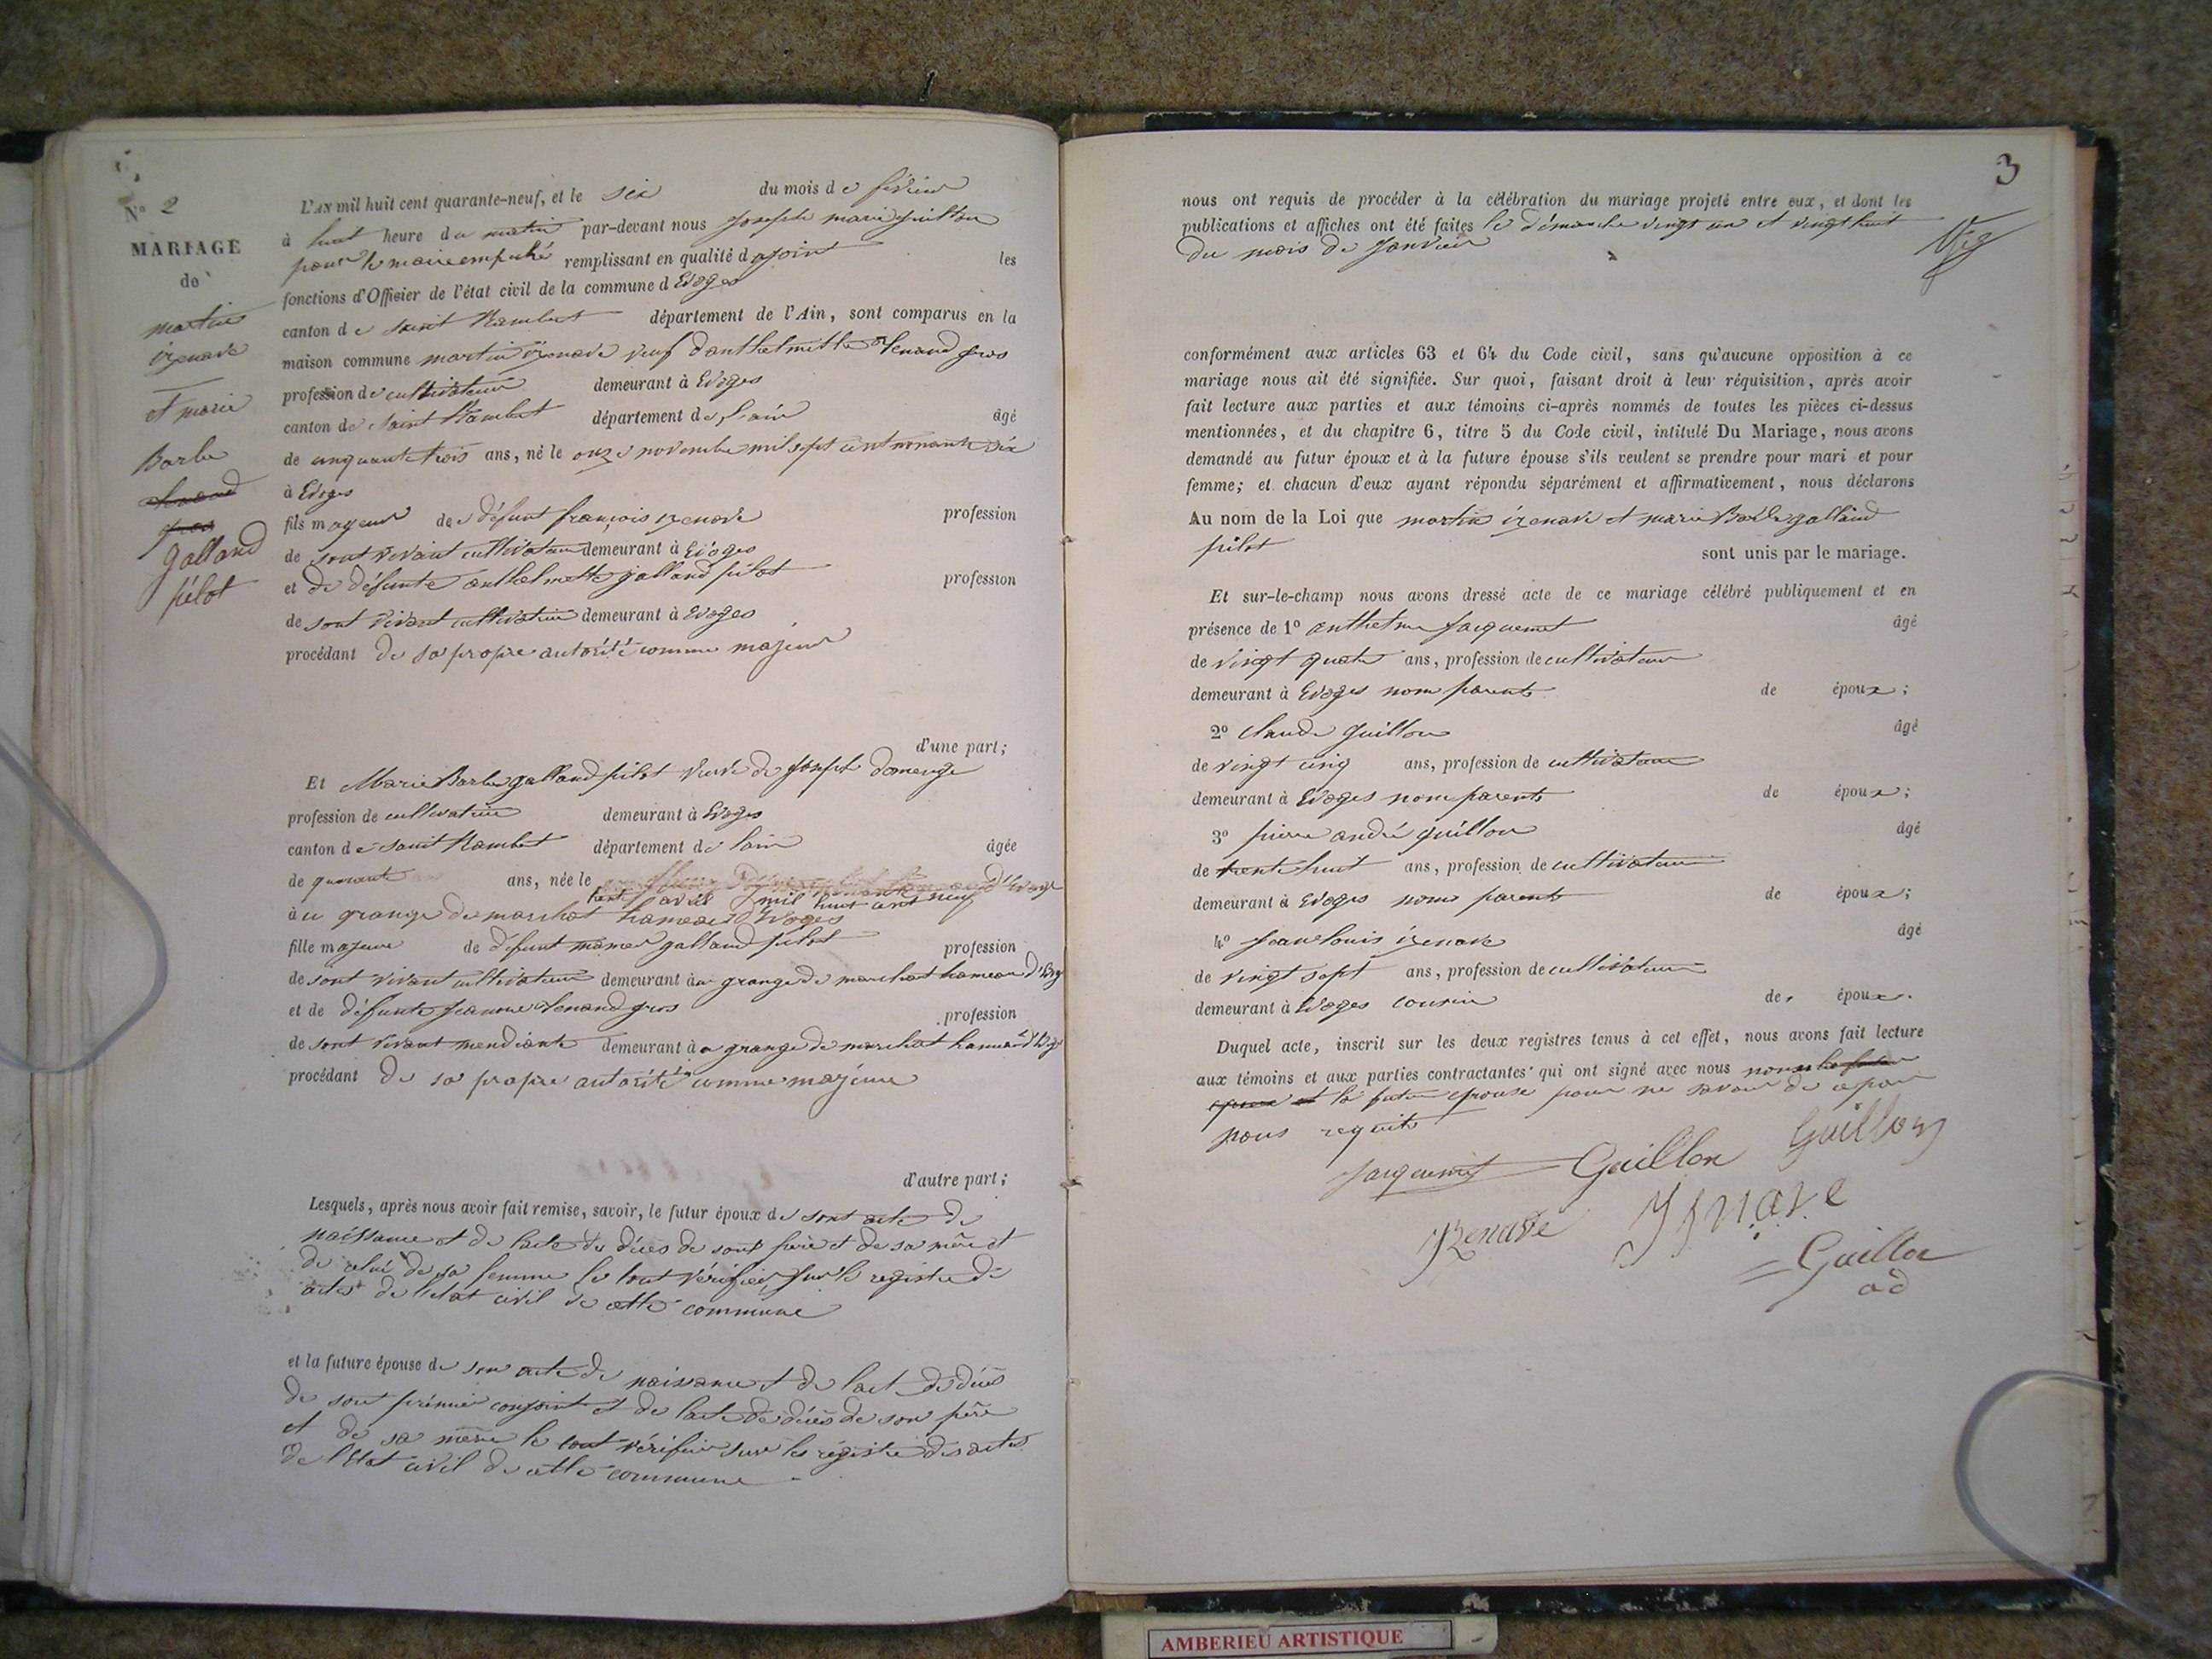 N° 2
MARIAGE
de
martin
izenave
et marie
Barbe
galland
pilot
L'AN mil huit cent quarante-neuf, et le six du mois de février
à huit heure du matin par-devant nous Joseph marie guillon
pour le maire empeché remplissant en qualité d ajoint les
fonctions d'Officier de l'état civil de la commune d Evoges
canton de saint Rambert département de l'Ain, sont comparus en la
maison commune martin izenave veuf d'anthelmette chenand gros
profession de cultivateur demeurant à Evoges
canton de saint Rambert département de l'ain âgé
de cinquante trois ans, né le onze novembre mil sept cent nonante six
à Evoges
fils majeur de défunt françois izenave profession
de sont vivant cultivateur demeurant à Evoges
et de défunte anthelmette galland pilot profession
de sont vivant cultivatrice demeurant à Evoges
procédant de sa propre autorité comme majeur
d'une part;
Et Marie Barbe galland pilot veuve de joseph domenge
profession de cultivatrice demeurant à Evoges
canton de saint Rambert département de lain âgée
de quarante ans, née le
avril mil huit cent neuf
à u grange de marchat hameau d'Evoges
fille majeure de défunt mamer galland pilot profession
de sont vivant cultivateur demeurant à u grange de marchat hameau d'Evog
et de défunte jeanne chenand gros profession
de sont vivant mendiante demeurant à u grange de marchat hameau d'Evog
procédant de sa propre autorité comme majeure
d'autre part;
Lesquels, après nous avoir fait remise, savoir, le futur époux de sont acte de
naissance et de lacte du déces de sont père et de sa mère et
de celui de sa femme le tout vérifier sur le registre de
actes de l'etat civil de cette commune
et la future épouse de son acte de naissance et de lact de déces
de sont prémier conjoint et de lacte de déces de son père
et de sa mère le tout vérifier sur les régistre des actes
de l'Etat civil de cette commune
3
nous ont requis de procéder à la célébration du mariage projeté entre eux, et dont les
publications et affiches ont été faites le démanche vingt un et vingt huit
du mois de Janvier
conformément aux articles 63 et 64 du Code civil, sans qu'aucune opposition à ce
mariage nous ait été signifiée. Sur quoi, faisant droit à leur réquisition, après avoir
fait lecture aux parties et aux témoins ci-après nommés de toutes les pièces ci-dessus
mentionnées, et du chapitre 6, titre 5 du Code civil, intitulé Du Mariage, nous avons
demandé au futur époux et à la future épouse s'ils veulent se prendre pour mari et pour
femme; et chacun d'eux ayant répondu séparément et affirmativement, nous déclarons
Au nom de la Loi que martin izenave et marie Barbe galland
pilot sont unis par le mariage.
Et sur-le-champ nous avons dressé acte de ce mariage célébré publiquement et en
présence de 1° anthelme Jacquemet âgé
de vingt quatre ans, profession de cultivateur
demeurant à Evoges nom parents de époux;
2° claude guillon âgé
de vingt cinq ans, profession de cultivateur
demeurant à Evoges nom parents de époux;
3° pierre andré guillon âgé
de trente huit ans, profession de cultivateur
demeurant à Evoges nom parents de époux;
4° Jean louis izenave âgé
de vingt sept ans, profession de cultivateur
demeurant à Evoges cousin de époux.
Duquel acte, inscrit sur les deux registres tenus à cet effet, nous avons fait lecture
aux témoins et aux parties contractantes qui ont signé avec nous non
la future epouse pour ne savoir de ce par
nous requits
Jacquemet Guillon Guillon
Izenave Isnave
Guillon
ad
AMBERIEU ARTISTIQUE